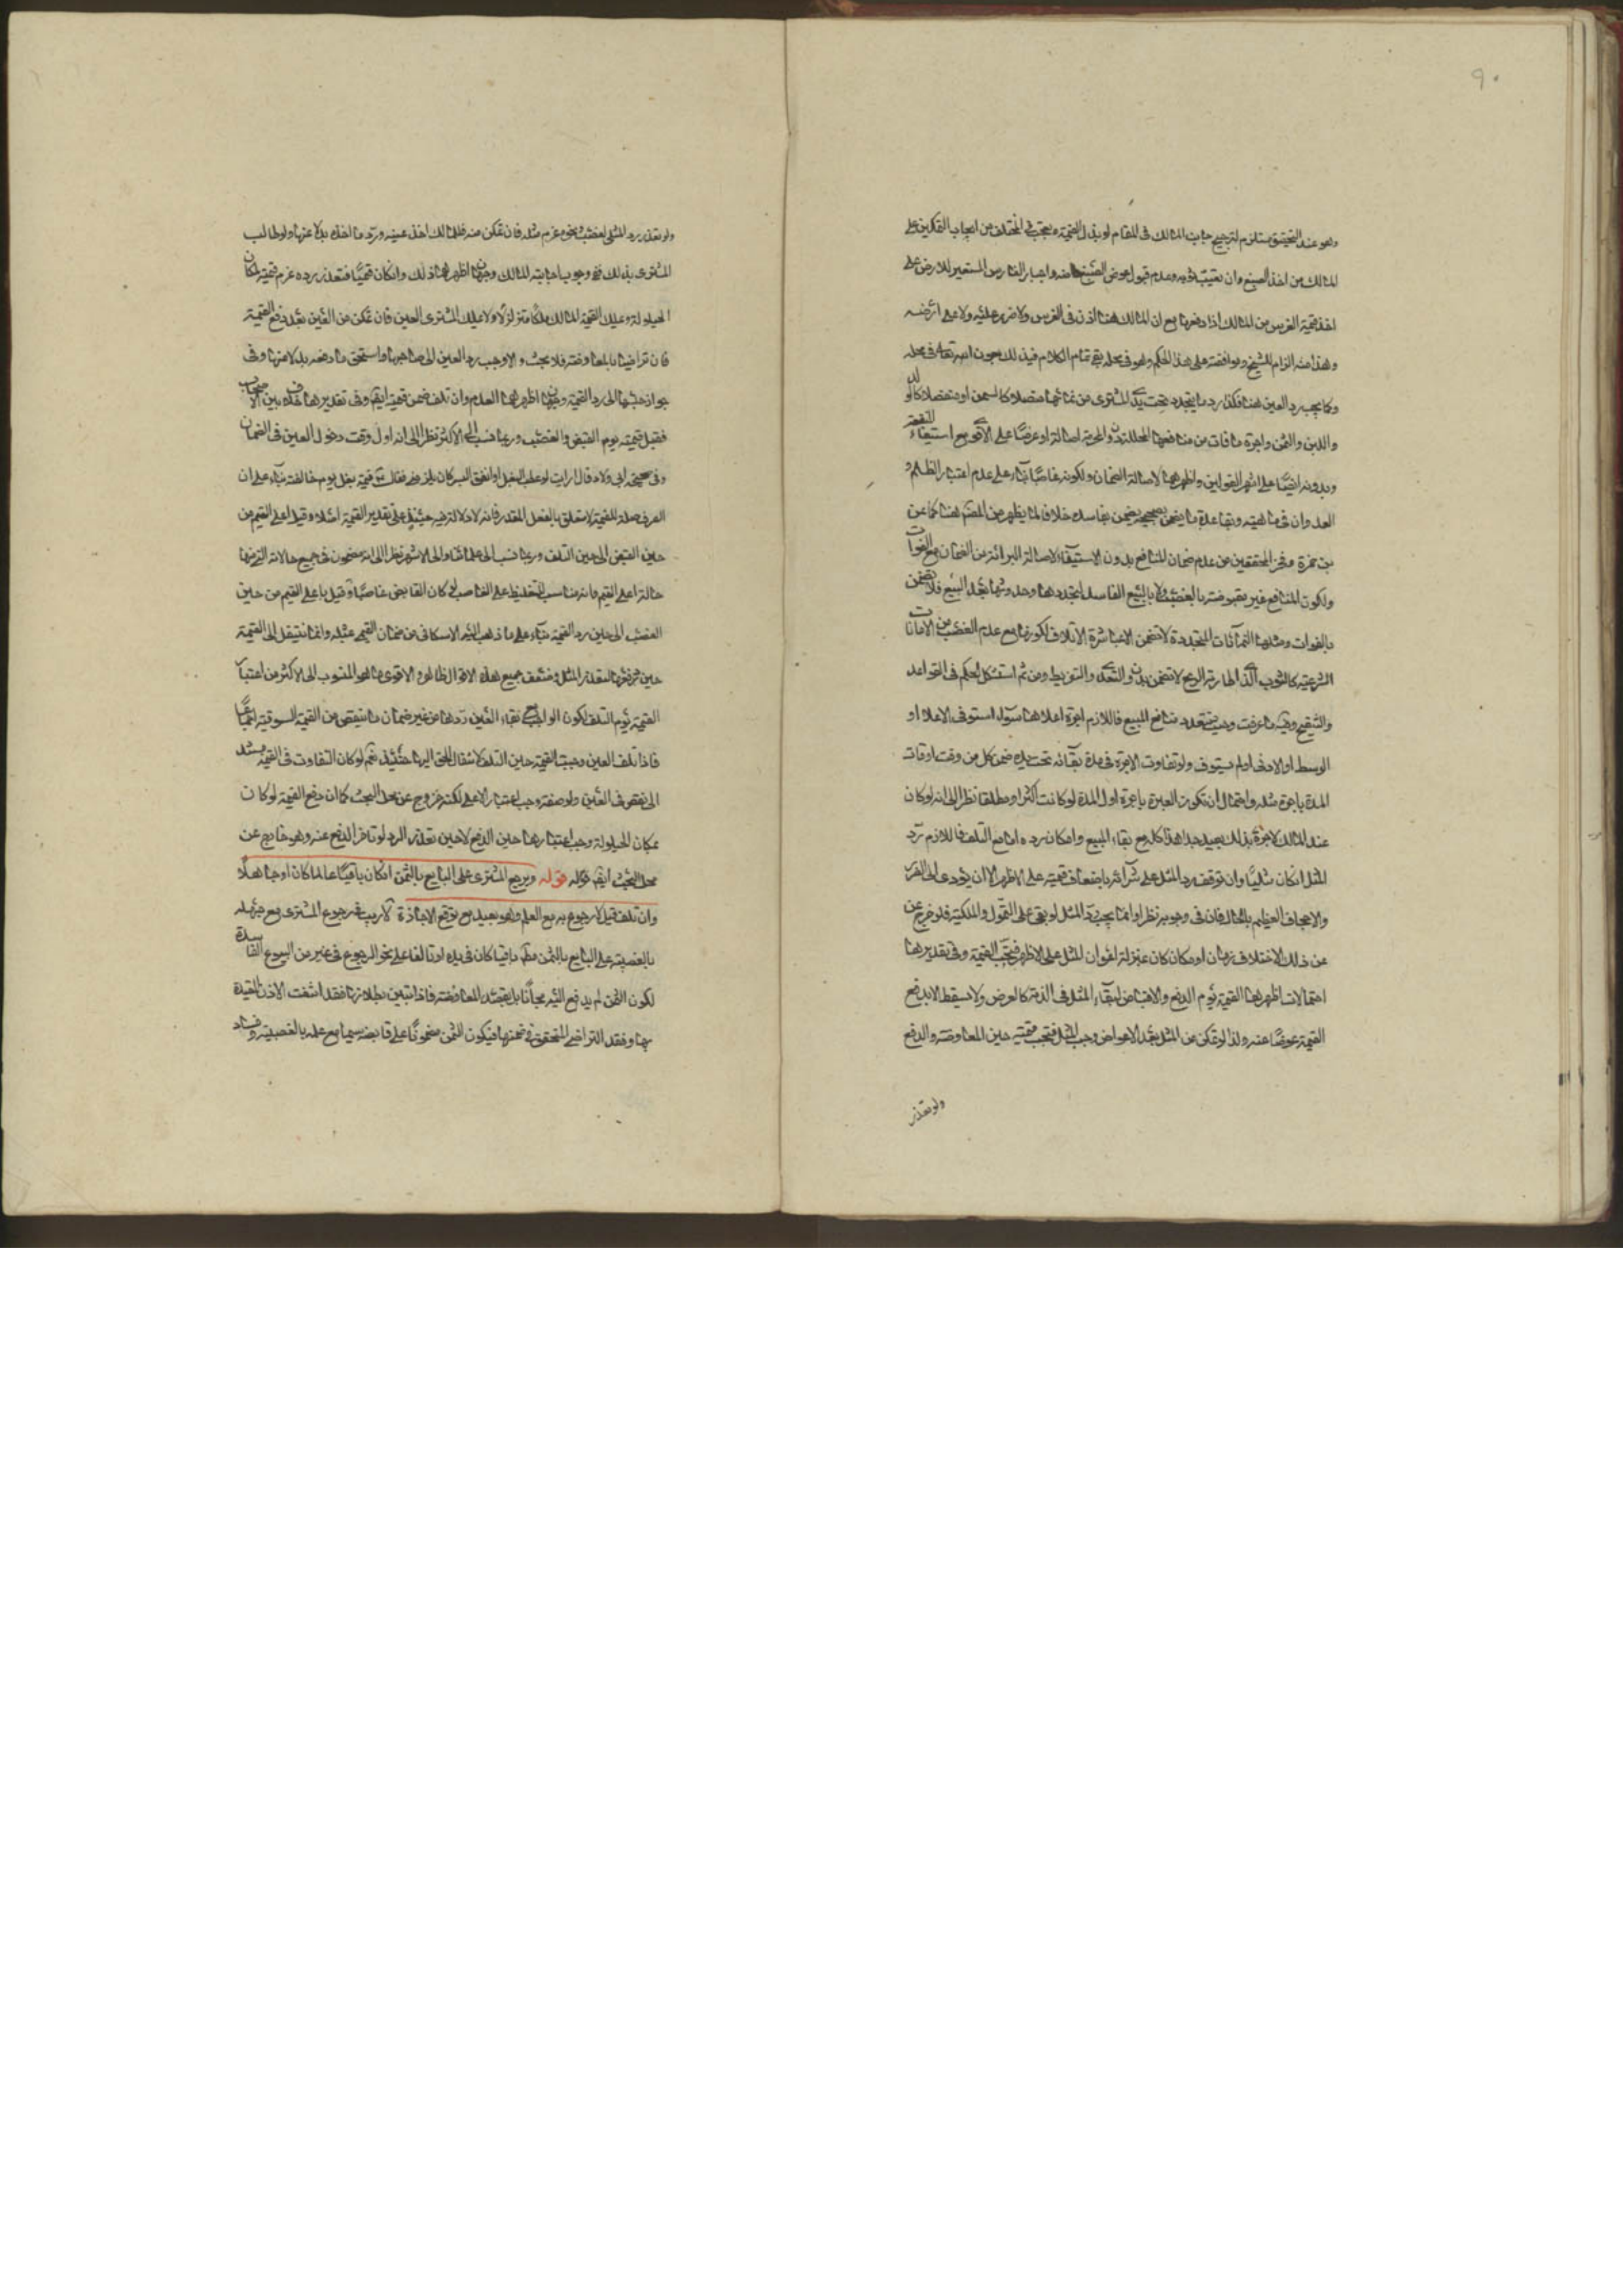 ٩٠
وهو عند التحقيق مستلزم لترجيح جانب المالك في المقام لو بذل القيمة من ايجاب التمكين على
المالك من اخذ الصبغ وان تعيب ثوبه وعدم قبول عوض الصبغ واجبار الغارس المستعير للارض على
اخذ قيمة الغرس من المالك اذا دفعها مع ان المالك هنا اذن في الغرس ولا ضرر عليه ولا على ارضه
وهذا منه الزام للشيخ وموافقته على هذا الحكم وهو في محله بقي تمام الكلام فيه لك بعون الله تعالى في محله
وكما يجب رد العين هنا فكذا رد ما يتجدد تحت يد المشتري من نمائها متصلا كالسمن او منفصلا كالولد
واللبن والثمن واجرة ما فات من منافعها المحللة دون المحرمة اصالة او عرضا على الاقوى مع استيفاء المنفعة
وبدونه ايضا على اشهر القولين واظهرهما لاصالة الضمان ولكونه غاصبا بناء على عدم اعتبار الظلم و
العدوان في ماهيته وبقاعدة ما يضمن بصحيحه يضمن بفاسده خلافا لما يظهر من المصنف هنا كما عن
بن حمزة وفخر المحققين من عدم ضمان المنافع بدون الاستيفاء لاصالة البرائة من الضمان مع الفوات
ولكون المنافع غير مقبوضة بالغصب ولا بالبيع الفاسد لتجددها وحدوثها بعد البيع فلا تضمن
بالفوات ومثلها النماءات المتجددة لا تضمن الا بمباشرة الاتلاف لكونها مع عدم الغصب من الامانات
الشرعية كالثوب الذي اطارته الريح لا تضمن بدون التعدي والتفريط ومن ثم استشكل الحكم في القواعد
والتنقيح وفيه ما عرفت وحيث تتعدد منافع المبيع فاللازم اجرة اعلاها سواء استوفى الاعلا او
الوسط او الادنى او لم يستوف ولو تفاوت الاجرة في مدة بقائه تحت يده ضمن كل من وقت اوقات
المدة باجرة مثله واحتمال ان تكون العبرة باجرة اول المدة لو كانت اكثر او مطلقا نظرا الى انه لو كان
عند المالك لاجرة بذلك بعيد جدا هذا كله مع بقاء المبيع وامكان رده واما مع التلف فاللازم رد
المثل ان كان مثليا وان توقف رد المثل على شرائه باضعاف قيمته على الاظهر الا ان يؤدي الى الضرر
والاجحاف العظيم بالحال فان في وجوبه نظرا وانما يجب رد المثل لو بقي على التمول والملكية فلو خرج عن
عن ذلك لاختلاف زمان او مكان كان بمنزلة اعواز المثل على الاظهر فتجب القيمة وفي تقديرها
احتمالات اظهرها القيمة يوم الدفع والاقباض لبقاء المثل في الذمة كالعرض ولا يسقط الا بدفع
القيمة عوضا عنه ولذا لو تمكن من المثل بعد الاعواض وجب المثل فتجب قيمته حين المعاوضة والدفع
ولو تعذر
ولو تعذر رد المثلي لغصب ونحوه غرم مثله فان تمكن منه فللمالك اخذ عينه ورد ما اخذه بدلا عنها ولو طالب
المشتري بذلك ففي وجوب اجابته للمالك وجهان اظهرهما ذلك وان كان قيميا فتعذر رده غرم قيمته لمكان
الحيلولة ويملك القيمة المالك ملكا متزلزلا ولا يملك المشتري العين فان تمكن من العين بعد دفع القيمة
فان تراضيا بالمعاوضة فلا بحث والا وجب رد العين الى صاحبها واستحق ما دفعه بدلا منها وفي
جواز حبسها الى رد القيمة وجهان اظهرهما العدم وان تلف ضمن قيمته ايضا وفي تقديرها خلاف بين الاصحاب
فقيل قيمته يوم القبض والغصب وربما نسب الى الاكثر نظرا الى انه اول وقت دخول العين في الضمان
وفي صحيحة ابي ولاد قال ارايت لو عطب البغل او انفق اليس كان يلزمني فقال نعم قيمة بغل يوم خالفته بناء على ان
الظرف صلة للقيمة لا متعلق بالفعل المقدر فانه لا دلالة فيه حينئذ على تقدير القيمة اصلا وقيل اعلى القيم من
حين القبض الى حين التلف وربما نسب الى علمائنا والى الاشهر نظرا الى انه مضمون في جميع حالاته التي منها
حالة اعلى القيم فانه مناسب للتغليظ على الغاصب لو كان القابض غاصبا وقيل باعلى القيم من حين
الغصب الى حين رد القيمة بناء على ما ذهب اليه الاسكافي من ضمان القيمي بمثله وانما ينتقل الى القيمة
حين دفعها لتعذر المثل وضعف جميع هذه الاقوال ظاهر والاقوى ما هو المنسوب الى الاكثر من اعتبار
القيمة يوم التلف لكون الواجب مع بقاء العين ردها من غير ضمان ما ينقص من القيمة السوقية اجماعا
فاذا تلف العين وجبت القيمة حين التلف لانتقال الحق اليها حينئذ نعم لو كان التفاوت في القيمة مستند
الى نقص في العين ولو صفة وجب اعتبار الاعلى لكنه خروج عن محل البحث كما ان دفع القيمة لو كان
بمكان الحيلولة وجب اعتبارها حين الدفع لا حين تعذر الرد لو تاخر الدفع عنه وهو خارج عن
محل البحث ايضا قوله قوله ويرجع المشتري على البايع بالثمن ان كان باقيا عالما كان او جاهلا
وان تلف قيل لا رجوع به مع العلم وهو بعيد مع توقع الاجازة لا ريب في رجوع المشتري مع جهله
بالغصبية على البايع بالثمن مطلقا باقيا كان في يده او تالفا على نحو الرجوع في غيره من البيوع الفاسدة
لكون الثمن لم يدفع اليه مجانا بل بقصد المعاوضة فاذا تبين بطلانها فقد انتفت الاذن المقيدة
بها وفقد التراضي المتحقق في ضمنها فيكون الثمن مضمونا على قابضه سيما مع علمه بالغصبية وفساد